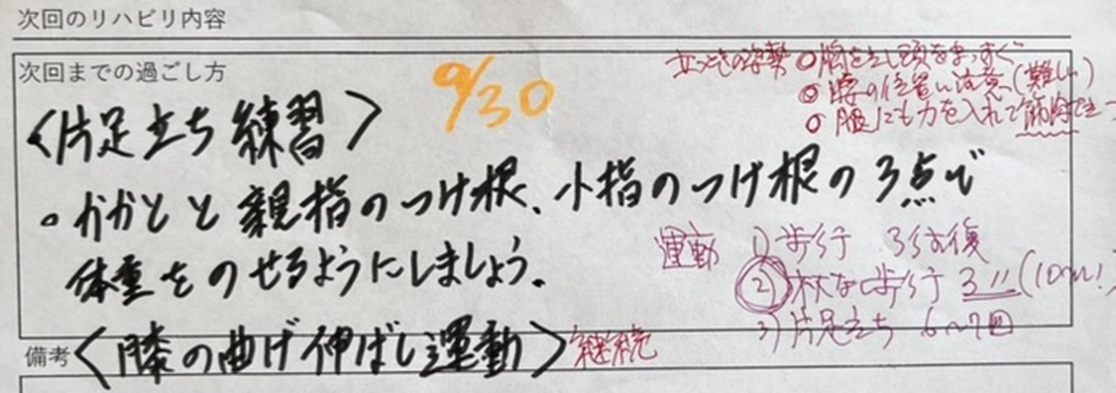 次回のリハビリ内容
次回までの過ごし方
9/30
立つときの姿勢 ○胸を出し頭をまっすぐ
◎腰の位置に注意(難しい)
○腹にも力を入れて筋肉
<片足立ち練習>
・かかとと親指のつけ根、小指のつけ根の3点で
体重をのせるようにしましょう。
運動 1)歩行 3往復
②杖なし歩行 3〃(100m!)
3)片足立ち 6~7回
備考 <膝の曲げ伸ばし運動> 継続